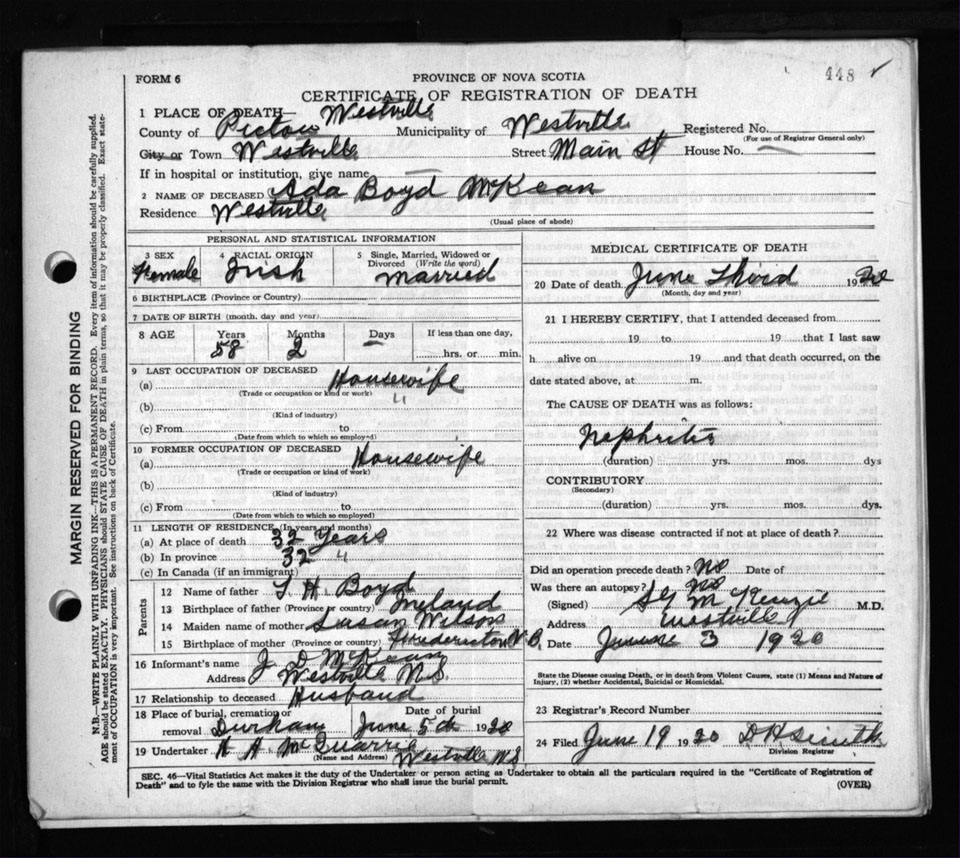 448 ✓
FORM 6
PROVINCE OF NOVA SCOTIA
CERTIFICATE OF REGISTRATION OF DEATH
1 PLACE OF DEATH— Westville
County of Pictou Municipality of Westville Registered No.
(For use of Registrar General only)
City or Town Westville Street Main St House No. —
If in hospital or institution, give name —
2 NAME OF DECEASED Ada Boyd McKean
Residence Westville
(Usual place of abode)
PERSONAL AND STATISTICAL INFORMATION
3 SEX Female
4 RACIAL ORIGIN Irish
5 Single, Married, Widowed or Divorced (Write the word) Married
6 BIRTHPLACE (Province or Country)
7 DATE OF BIRTH (month, day and year)
8 AGE Years 58 Months 2 Days — If less than one day, hrs. or min.
9 LAST OCCUPATION OF DECEASED
(a) Housewife
(Trade or occupation or kind or work)
(b) "
(Kind of industry)
(c) From to
(Date from which to which so employed)
10 FORMER OCCUPATION OF DECEASED
(a) Housewife
(Trade or occupation or kind of work)
(b)
(Kind of industry)
(c) From to
(Date from which to which so employed)
11 LENGTH OF RESIDENCE (In years and months)
(a) At place of death 32 Years
(b) In province 32 "
(c) In Canada (if an immigrant)
Parents
12 Name of father T. H. Boyd
13 Birthplace of father (Province or country) Ireland
14 Maiden name of mother Susan Wilson
15 Birthplace of mother (Province or country) Fredericton N.B.
16 Informant's name J. D. McKean
Address Westville N.S.
17 Relationship to deceased Husband
18 Place of burial, cremation or removal Durham Date of burial June 5th 1920
19 Undertaker McQuarrie
(Name and Address) Westville N.S
MEDICAL CERTIFICATE OF DEATH
20 Date of death June Third 1920
(Month, day and year)
21 I HEREBY CERTIFY, that I attended deceased from
19 to 19 that I last saw
h alive on 19 and that death occurred, on the
date stated above, at m.
The CAUSE OF DEATH was as follows:
Nephritis
(duration) yrs. mos. dys
CONTRIBUTORY
(Secondary)
(duration) yrs. mos. dys.
22 Where was disease contracted if not at place of death?
Did an operation precede death? No Date of
Was there an autopsy? No
(Signed) McKenzie M.D.
Address Westville
Date June 3 1920
State the Disease causing Death, or in death from Violent Causes, state (1) Means and Nature of
Injury, (2) whether Accidental, Suicidal or Homicidal.
23 Registrar's Record Number
24 Filed June 19 1920 D H Smith
Division Registrar
SEC. 46—Vital Statistics Act makes it the duty of the Undertaker or person acting as Undertaker to obtain all the particulars required in the "Certificate of Registration of
Death" and to fyle the same with the Division Registrar who shall issue the burial permit.
(OVER)
MARGIN RESERVED FOR BINDING
N.B.—WRITE PLAINLY WITH UNFADING INK—THIS IS A PERMANENT RECORD. Every item of information should be carefully supplied.
AGE should be stated EXACTLY. PHYSICIANS should STATE CAUSE OF DEATH in plain terms, so that it may be properly classified. Exact state-
ment of OCCUPATION is very important. See instructions on back of Certificate.